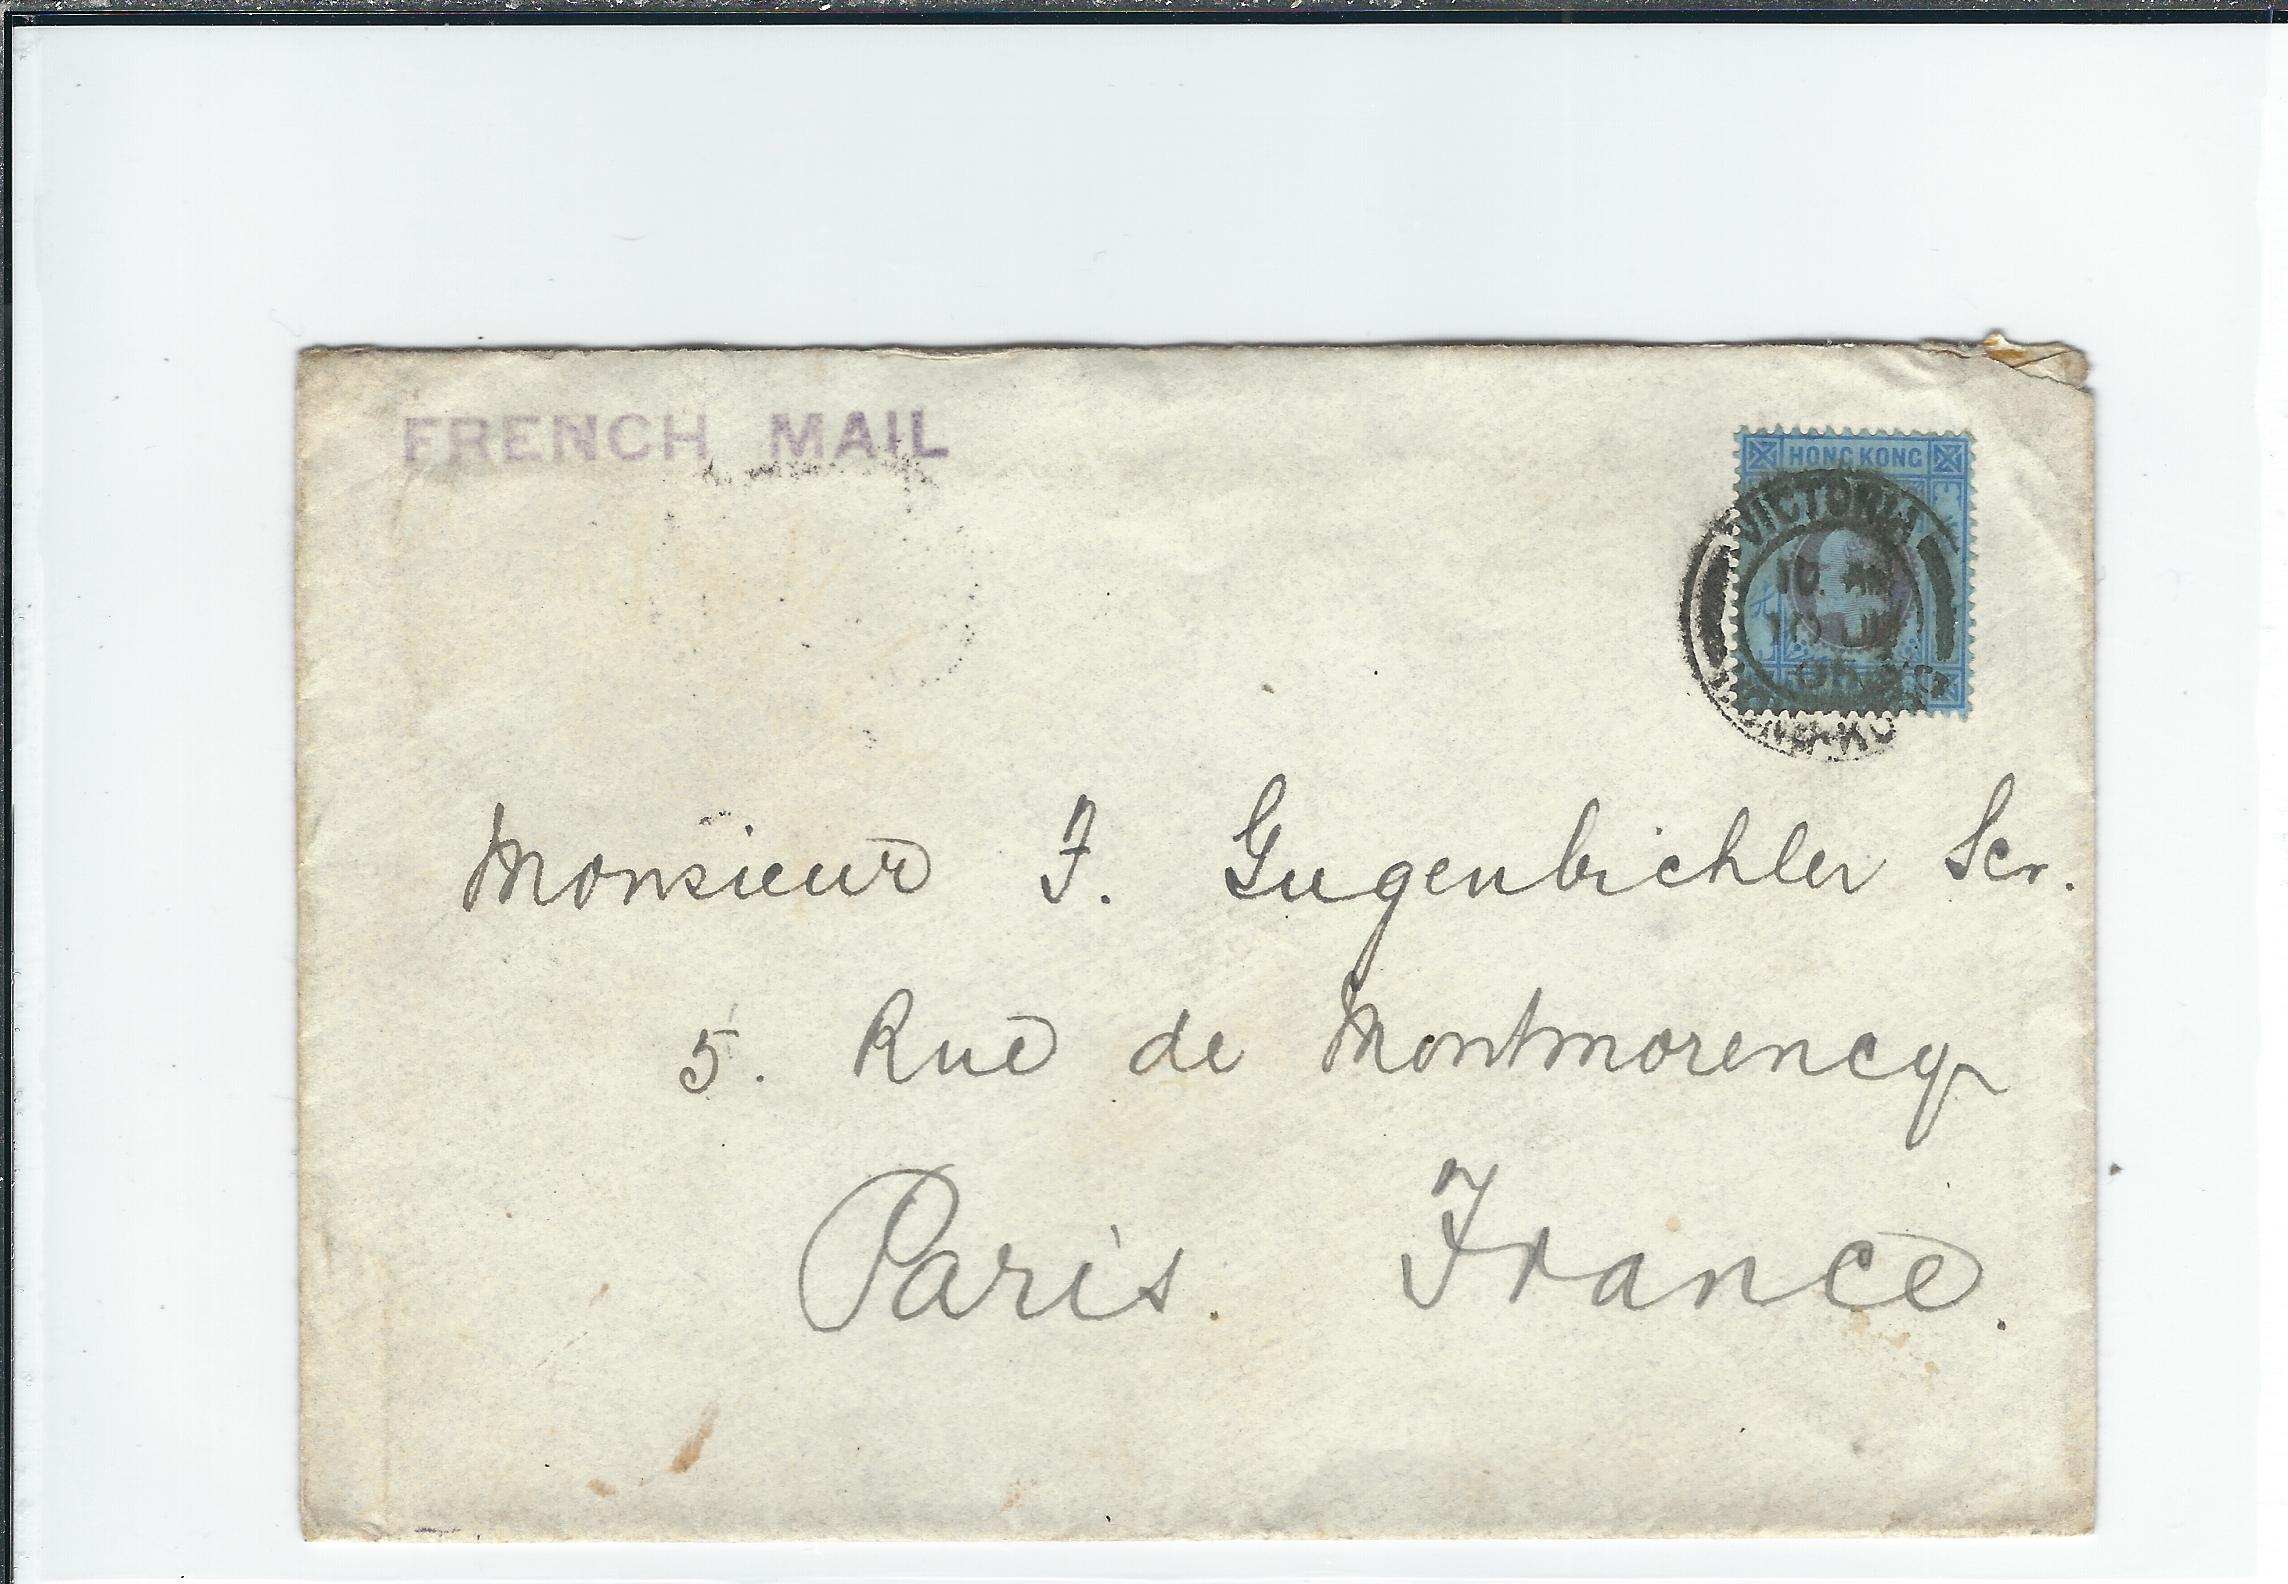 FRENCH MAIL
HONG KONG
VICTORIA
10 AM
Monsieur J. Gugenbichler Scr.
5. Rue de Montmorency
Paris. France.